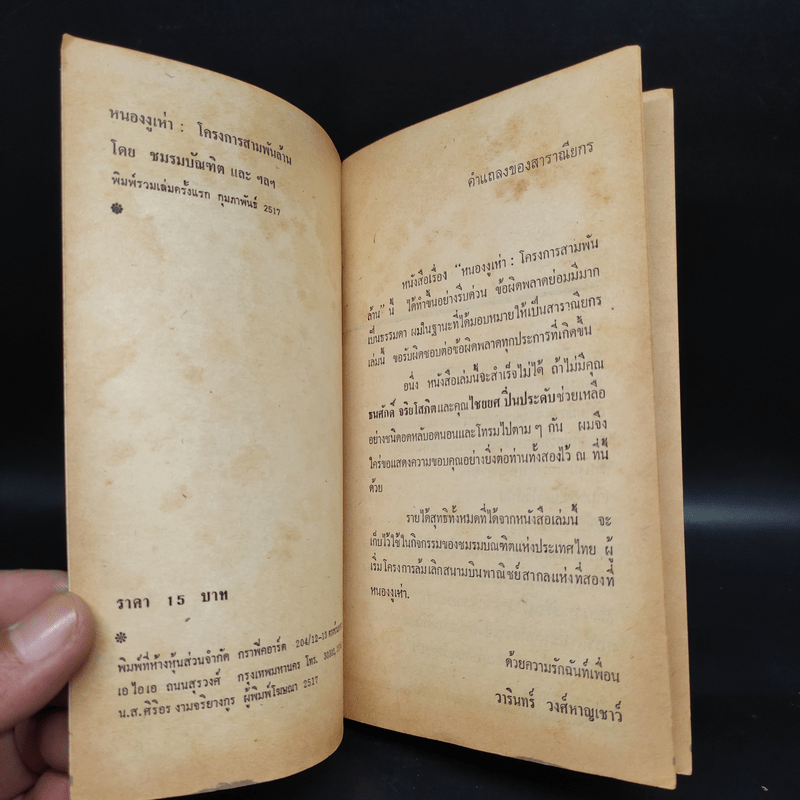 หนองงูเห่า : โครงการสามพันล้าน
โดย ชมรมบัณฑิต และ ฯลฯ
พิมพ์รวมเล่มครั้งแรก กุมภาพันธ์ 2517
ราคา 15 บาท
พิมพ์ที่ห้างหุ้นส่วนจำกัด กราฟิคอาร์ต 204/12-13
เอ ไอ เอ ถนนสุรวงศ์ กรุงเทพมหานคร โทร.
น.ส. ศิริอร งามจริยางกูร ผู้พิมพ์โฆษณา 2517
คำแถลงของสาราณียกร
หนังสือเรื่อง "หนองงูเห่า : โครงการสามพัน
ล้าน" นี้ ได้ทำขึ้นอย่างรีบด่วน ข้อผิดพลาดย่อมมีมาก
เป็นธรรมดา ผมในฐานะที่ได้มอบหมายให้เป็นสาราณียกร
เล่มนี้ ขอรับผิดชอบต่อข้อผิดพลาดทุกประการที่เกิดขึ้น
อนึ่ง หนังสือเล่มนี้จะสำเร็จไม่ได้ ถ้าไม่มีคุณ
ธนศักดิ์ จริยโสภิตและคุณไชยยศ ปิ่นประดับช่วยเหลือ
อย่างชนิดอดหลับอดนอนและโทรมไปตาม ๆ กัน ผมจึง
ใคร่ขอแสดงความขอบคุณอย่างยิ่งต่อท่านทั้งสองไว้ ณ ที่นี้
ด้วย
รายได้สุทธิทั้งหมดที่ได้จากหนังสือเล่มนี้ จะ
เก็บไว้ใช้ในกิจกรรมของชมรมบัณฑิตแห่งประเทศไทย ผู้
เริ่มโครงการล้มเลิกสนามบินพาณิชย์สากลแห่งที่สองที่
หนองงูเห่า.
ด้วยความรักฉันท์เพื่อน
วารินทร์ วงศ์หาญเชาว์